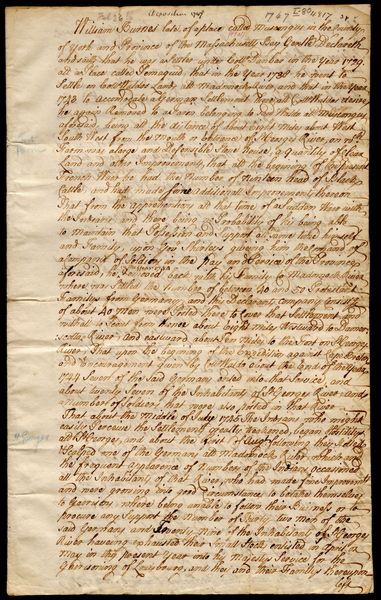 Deposition 1747
1747
William Burnes late of a place called Muscongus in the County
of York and Province of the Massachusetts Bay Gentn Declareth
and saith that he was a settler under Coll Dunbar in the Year 1729
at a place called Pemaquid that in the Year 1738 he went to
settle on Land at Madumcock and that in the Year
1743 to accomodate a German Settlement there, at Coll
he again Removed to a Farm belonging to said at Muscongus
aforesaid, being at the distance of about Eight Miles about West
South West from the Mouth or Entrance of St Georges River, on wch
Farm was a large and Defensible Stone house, a Quantity of Clear
Land and other Improvements, that at the beginning of the present
French War he had the Number of Nineteen head of Black
Cattle and had made some additional Improvements thereon
That from the apprehensions at that time of a sudden War with
the Indians and there being no Probability of his being able
to maintain that Possession and support the same and himself
and Family, upon Govr Shirleys giving him the Command of
a Company of Soldiers in the pay and Service of the Province
aforesaid he Removed back with his Family to Madumcock River
where was settled the Number of between 40 and 50 Protestant
Familys from Germany, and this Declarants Company consisting
of about 40 Men were Posted there to Cover that Settlement and
withall to Scout from thence about Eight Miles Westward to Damar-
scotta River and Eastward about Ten Miles to the Fort on St Georges
River That upon the beginning of the Expedition against Cape Breton
and Encouragement given by about the End of the Year
1744 Seven of the said Germans Listed into that Service, and
about twenty Seven of the Inhabitants of St Georges River and
a Number of Soldiers that were also posted in that River
That about the middle of July 1745 The Indians who might
easily Perceive the Settlements greatly Weakened, began Hostilities
at St Georges, and about the first of Augt following they Killed
& Scalped one of the Germans at Madumcock River which and
the frequent appearance of Numbers of the Indians occasioned
all the Inhabitants of that River who had made fine Improvements
and were growing into good Circumstances to betake themselves
to Garrison, where being unable to follow their Business or to
procure any Support the Number of Thirty two men of the
said Germans and some of the Inhabitants of St Georges
River having exhausted their Small Stock, enlisted in April or
May in this present Year into his Majestys Service for the
Garrisoning of Louisbourg, and they and their Familys thereupon
left